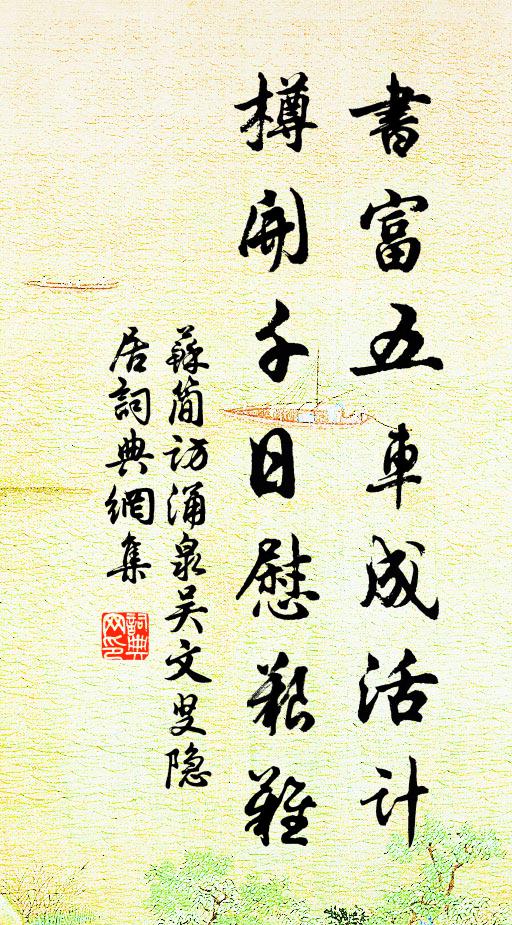 書富五車成活計
樽開千日慰艱難
蘇简訪涌泉吴文叟隐
居詞典網集
詞典网印